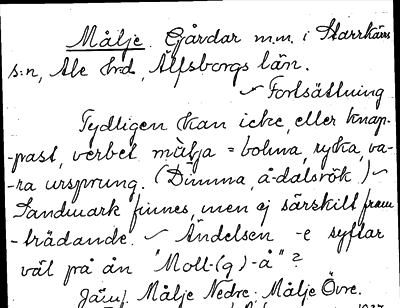 Målje. Gårdar m.m. i Starrkärrs
s:n, Ale hrd, Älfsborgs län.
Fortsättning
Tydligen kan icke, eller knap-
-past, verbet mülja = bolma, ryka, va-
-ra ursprung. (Dimma, å-dalsrök)
Sandmark finnes, men ej särskilt fram-
-trädande. Ändelsen -e syftar
väl på ån "Moll-(g)-å"?
Jämf. Målje Nedre. Målje Övre.